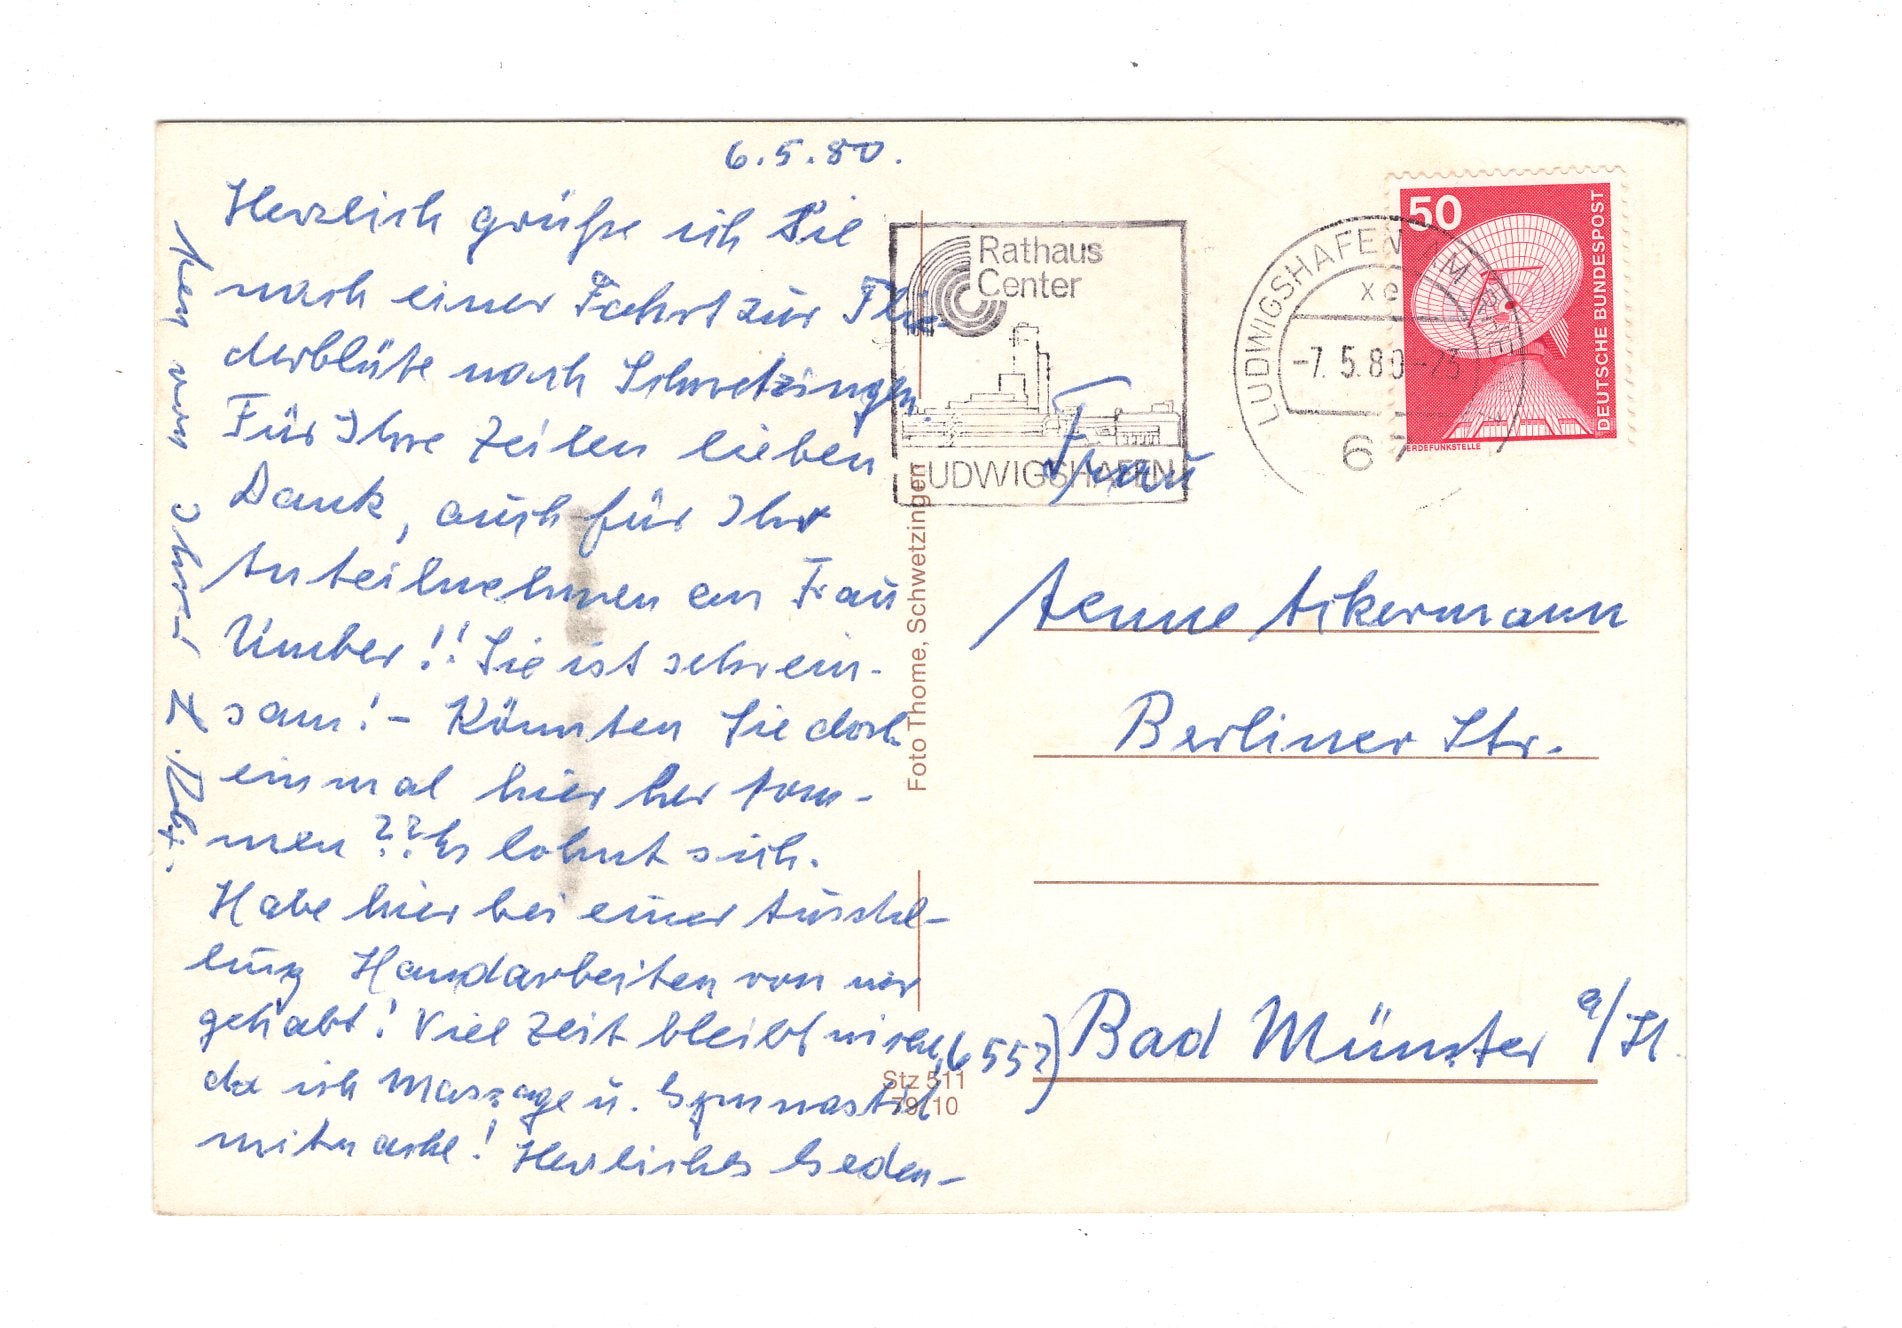 6.5.80.
Herzlich grüße ich Sie
nach einer Fahrt zur Flie-
derblüte nach Schwetzingen.
Für Ihre Zeilen lieben
Dank, auch für Ihr
Anteilnehmen an Frau
Umber!! Sie ist sehr ein-
sam! - Könnten Sie doch
einmal hier her kom-
men?? Es lohnt sich.
Habe hier bei einer Ausstel-
lung Handarbeiten von mir
gehabt! Viel Zeit bleibt nicht,
da ich Massage u. Gymnastik
mitmache! Herzliches Geden-
ken von Ihrer
Foto Thome, Schwetzingen
Stz 511
79/10
Rathaus
Center
LUDWIGSHAFEN
LUDWIGSHAFEN AM RHEIN
xe
-7.5.80-23
67
50
DEUTSCHE BUNDESPOST
ERDEFUNKSTELLE
Frau
Aenne Ackermann
Berliner Str.
(6552) Bad Münster a/St.